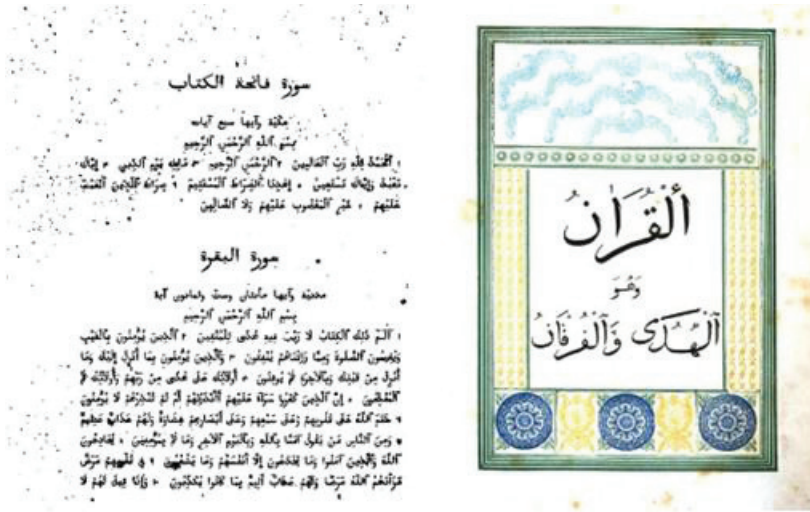 سورة فاتحة الكتاب
مكيّة وآيها سبع آيات
بِسْمِ ٱللَّهِ ٱلرَّحْمٰنِ ٱلرَّحِيمِ
١ أَلْحَمْدُ لِلَّهِ رَبِّ ٱلْعَالَمِينَ ٢ أَلرَّحْمٰنِ ٱلرَّحِيمِ ٣ مَالِكِ يَوْمِ ٱلدِّينِ ٤ إِيَّاكَ
نَعْبُدُ وَإِيَّاكَ نَسْتَعِينُ ٥ إِهْدِنَا ٱلصِّرَاطَ ٱلْمُسْتَقِيمَ ٦ صِرَاطَ ٱلَّذِينَ أَنْعَمْتَ
عَلَيْهِمْ ٧ غَيْرِ ٱلْمَغْضُوبِ عَلَيْهِمْ وَلَا ٱلضَّالِّينَ
سورة البقرة
مدنيّة وآيها مائتان وستّ وثمانون آية
بِسْمِ ٱللَّهِ ٱلرَّحْمٰنِ ٱلرَّحِيمِ
١ أَلَمّ ذٰلِكَ ٱلْكِتَابُ لَا رَيْبَ فِيهِ هُدًى لِلْمُتَّقِينَ ٢ أَلَّذِينَ يُؤْمِنُونَ بِٱلْغَيْبِ
وَيُقِيمُونَ ٱلصَّلَوةَ وَمِمَّا رَزَقْنَاهُمْ يُنْفِقُونَ ٣ وَٱلَّذِينَ يُؤْمِنُونَ بِمَا أُنْزِلَ إِلَيْكَ وَمَا
أُنْزِلَ مِنْ قَبْلِكَ وَبِٱلْآخِرَةِ هُمْ يُوقِنُونَ ٤ أُولَٰئِكَ عَلَى هُدًى مِنْ رَبِّهِمْ وَأُولَٰئِكَ هُمُ
ٱلْمُفْلِحُونَ ٥ إِنَّ ٱلَّذِينَ كَفَرُوا سَوَآءٌ عَلَيْهِمْ أَأَنْذَرْتَهُمْ أَمْ لَمْ تُنْذِرْهُمْ لَا يُؤْمِنُونَ
٦ خَتَمَ ٱللَّهُ عَلَى قُلُوبِهِمْ وَعَلَى سَمْعِهِمْ وَعَلَى أَبْصَارِهِمْ غِشَاوَةٌ وَلَهُمْ عَذَابٌ عَظِيمٌ
٧ وَمِنَ ٱلنَّاسِ مَنْ يَقُولُ آمَنَّا بِٱللَّهِ وَبِٱلْيَوْمِ ٱلْآخِرِ وَمَا هُمْ بِمُؤْمِنِينَ ٨ يُخَادِعُونَ
ٱللَّهَ وَٱلَّذِينَ آمَنُوا وَمَا يَخْدَعُونَ إِلَّا أَنْفُسَهُمْ وَمَا يَشْعُرُونَ ٩ فِي قُلُوبِهِمْ مَرَضٌ
فَزَادَهُمُ ٱللَّهُ مَرَضًا وَلَهُمْ عَذَابٌ أَلِيمٌ بِمَا كَانُوا يَكْذِبُونَ ١٠ وَإِذَا قِيلَ لَهُمْ لَا
أَلْقُرْاٰنُ
وَهُوَ
أَلْهُدَى وَٱلْفُرْقَانُ